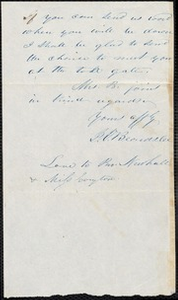 If you can send us word
when you will be down
I shall be glad to send
the choice to meet you
at the toll gate.
Mrs. B. joins
in kind regards.
Yours affy,
Love to Mrs.
& Miss